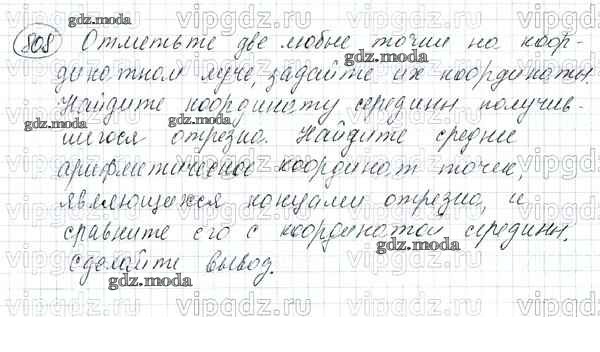 808 Отметьте две любые точки на коор-
динатном луче, задайте их координаты.
Найдите координату середины получив-
шегося отрезка. Найдите среднее
арифметическое координат точек,
являющихся концами отрезка, и
сравните его с координатой середины.
Сделайте вывод.
gdz.moda
gdz.moda
gdz.moda
gdz.moda
gdz.moda
gdz.moda
vipgdz.ru